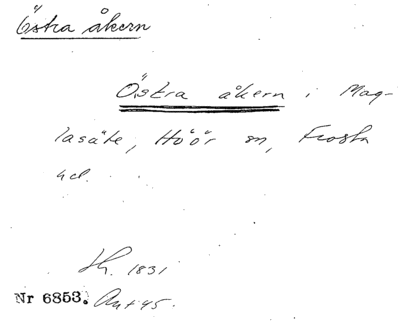 Östra åkern
Östra åkern i Mag-
lasäte, Höör sn, Frosta
hd.
Sk. 1831
Nr 6853. Ant 45.